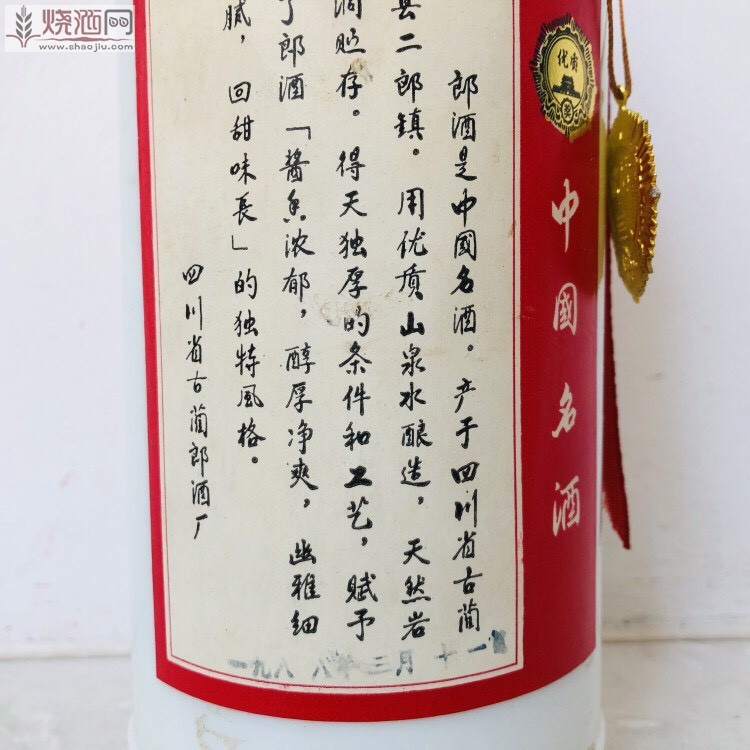 烧酒网
www.shaojiu.com
优质
中國名酒
郎酒是中國名酒。产于四川省古蔺
县二郎镇。用优质山泉水酿造，天然岩
洞贮存。得天独厚的条件和工艺，赋予
了郎酒「醬香浓郁，醇厚净爽，幽雅细
腻，回甜味長」的独特风格。
四川省古蔺郎酒厂
一九八八年三月十一